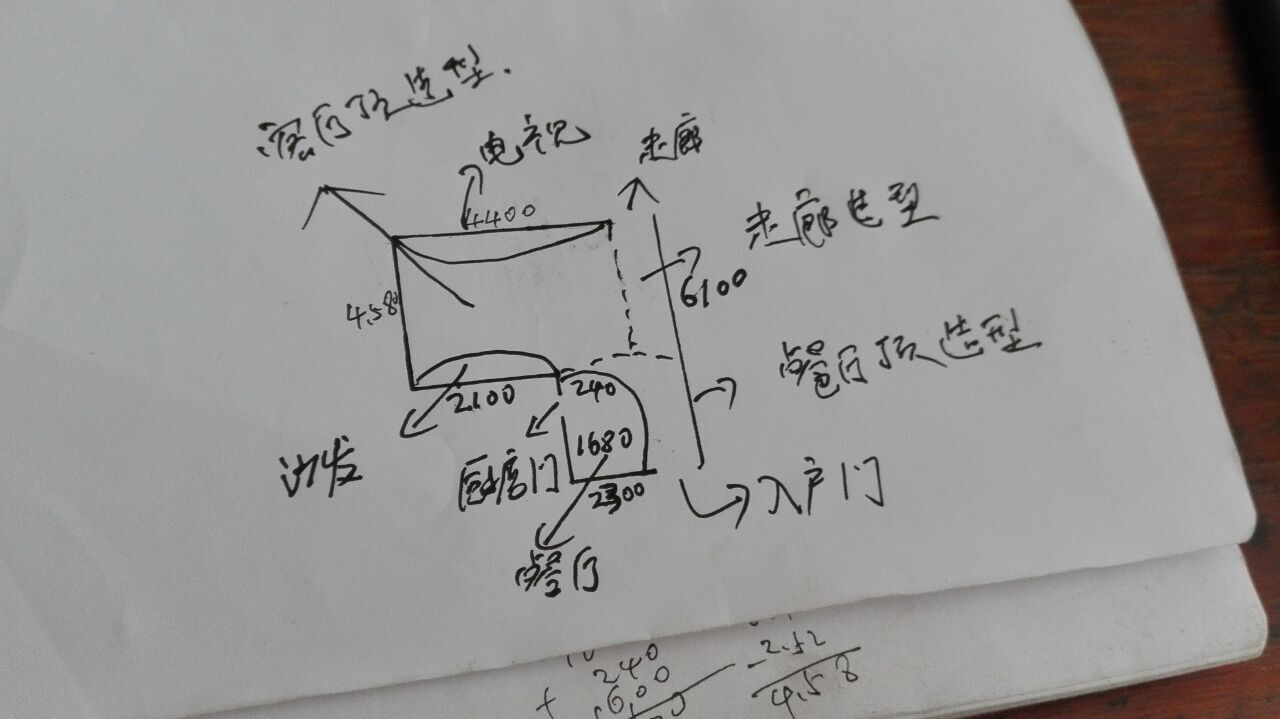 客厅顶造型.
电视
走廊
4400
走廊造型
4.58
6100
餐厅顶造型
2100
240
沙发
厨房门
1680
入户门
2300
餐厅
240
2.52
+ 600
4.58